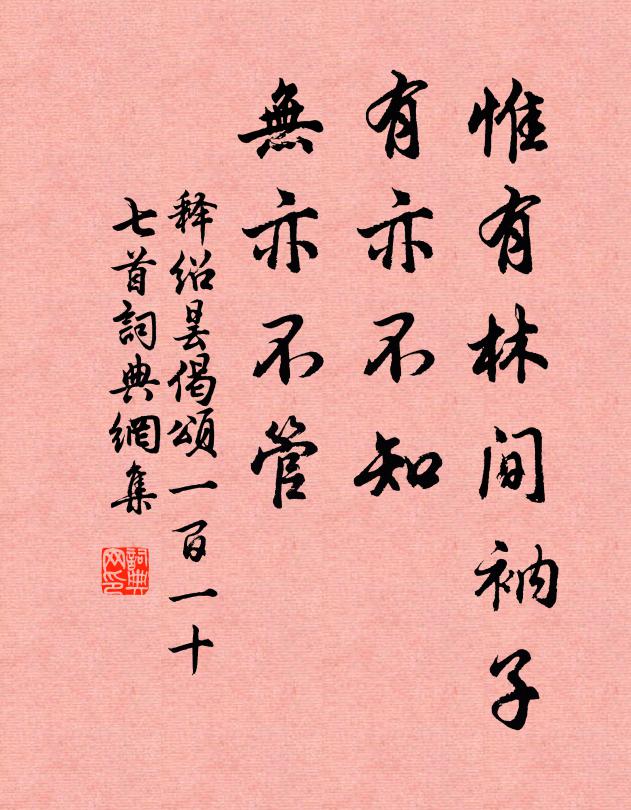 惟有林间衲子
有亦不知
無亦不管
释绍昙偈頌一百一十
七首詞典網集
詞典
网印